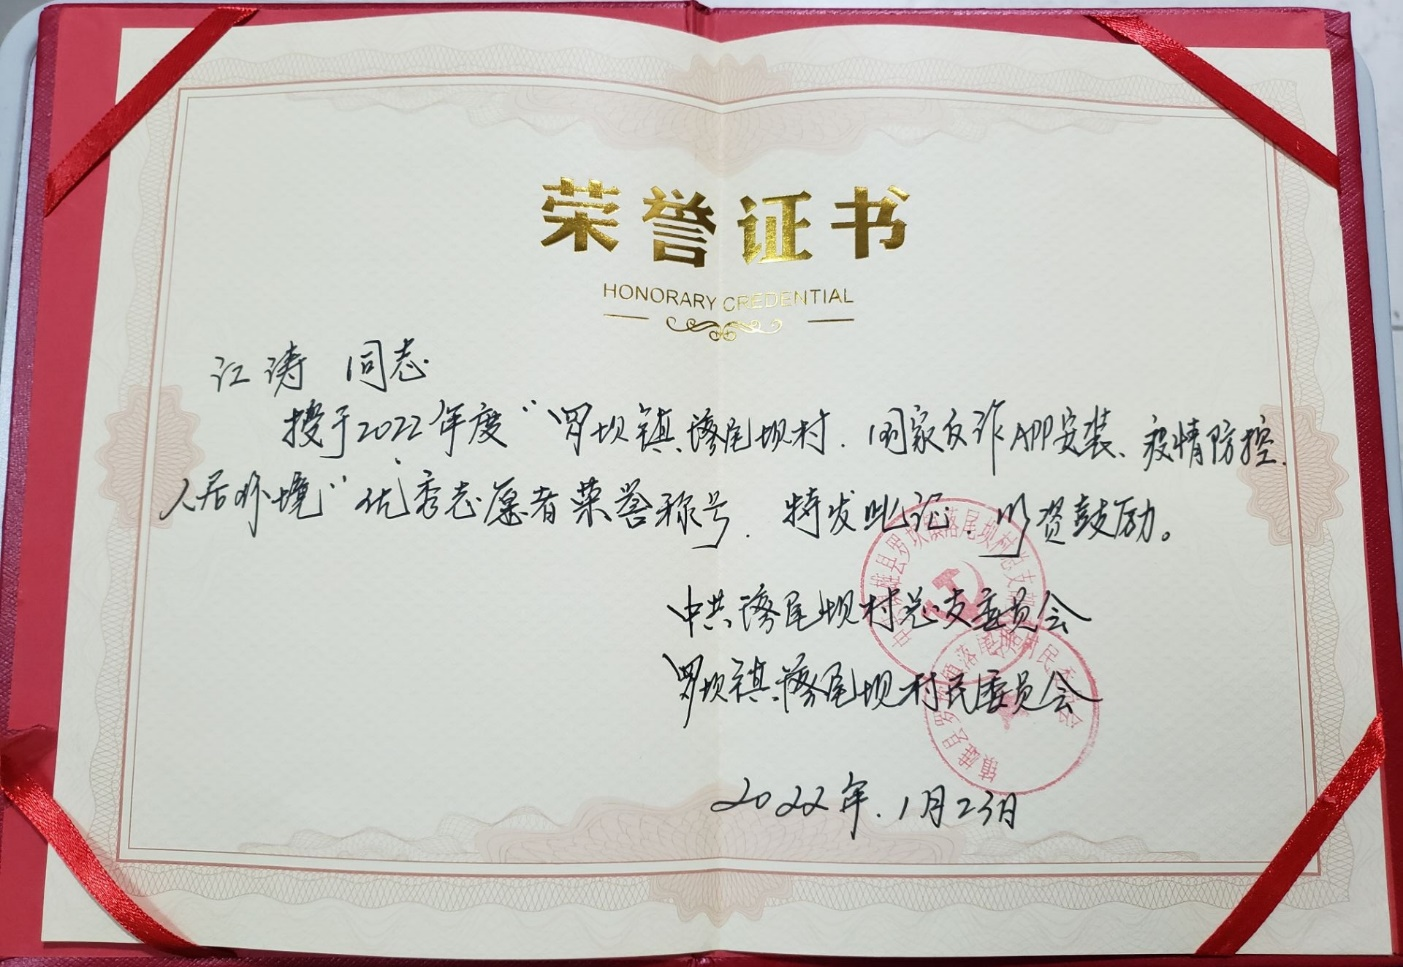 荣誉证书
HONORARY CREDENTIAL
江涛 同志
授于2022年度“罗坎镇落尾坝村、国家反诈APP安装、疫情防控、
人居环境”优秀志愿者荣誉称号、特发此证、以资鼓励。
中共落尾坝村总支委员会
罗坎镇落尾坝村民委员会
2022年.1月23日
镇雄县罗坎镇落尾坝村民委员会